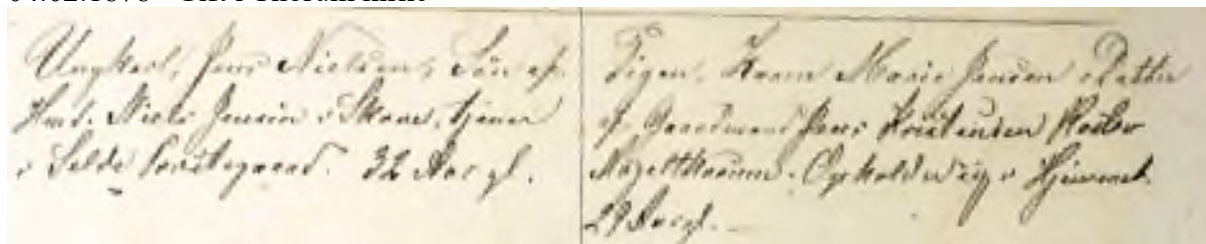 Ungkarl, Jens Nielsen, Søn af
Hmd. Niels Jensen i Skane, tjener
i Selde Præstegaard. 32 Aar gl.
Pigen Karen Marie Jensen Datter
af Gaardmand Jens Kristensen
Opholder sig i Hjemmet.
29 Aar gl. –